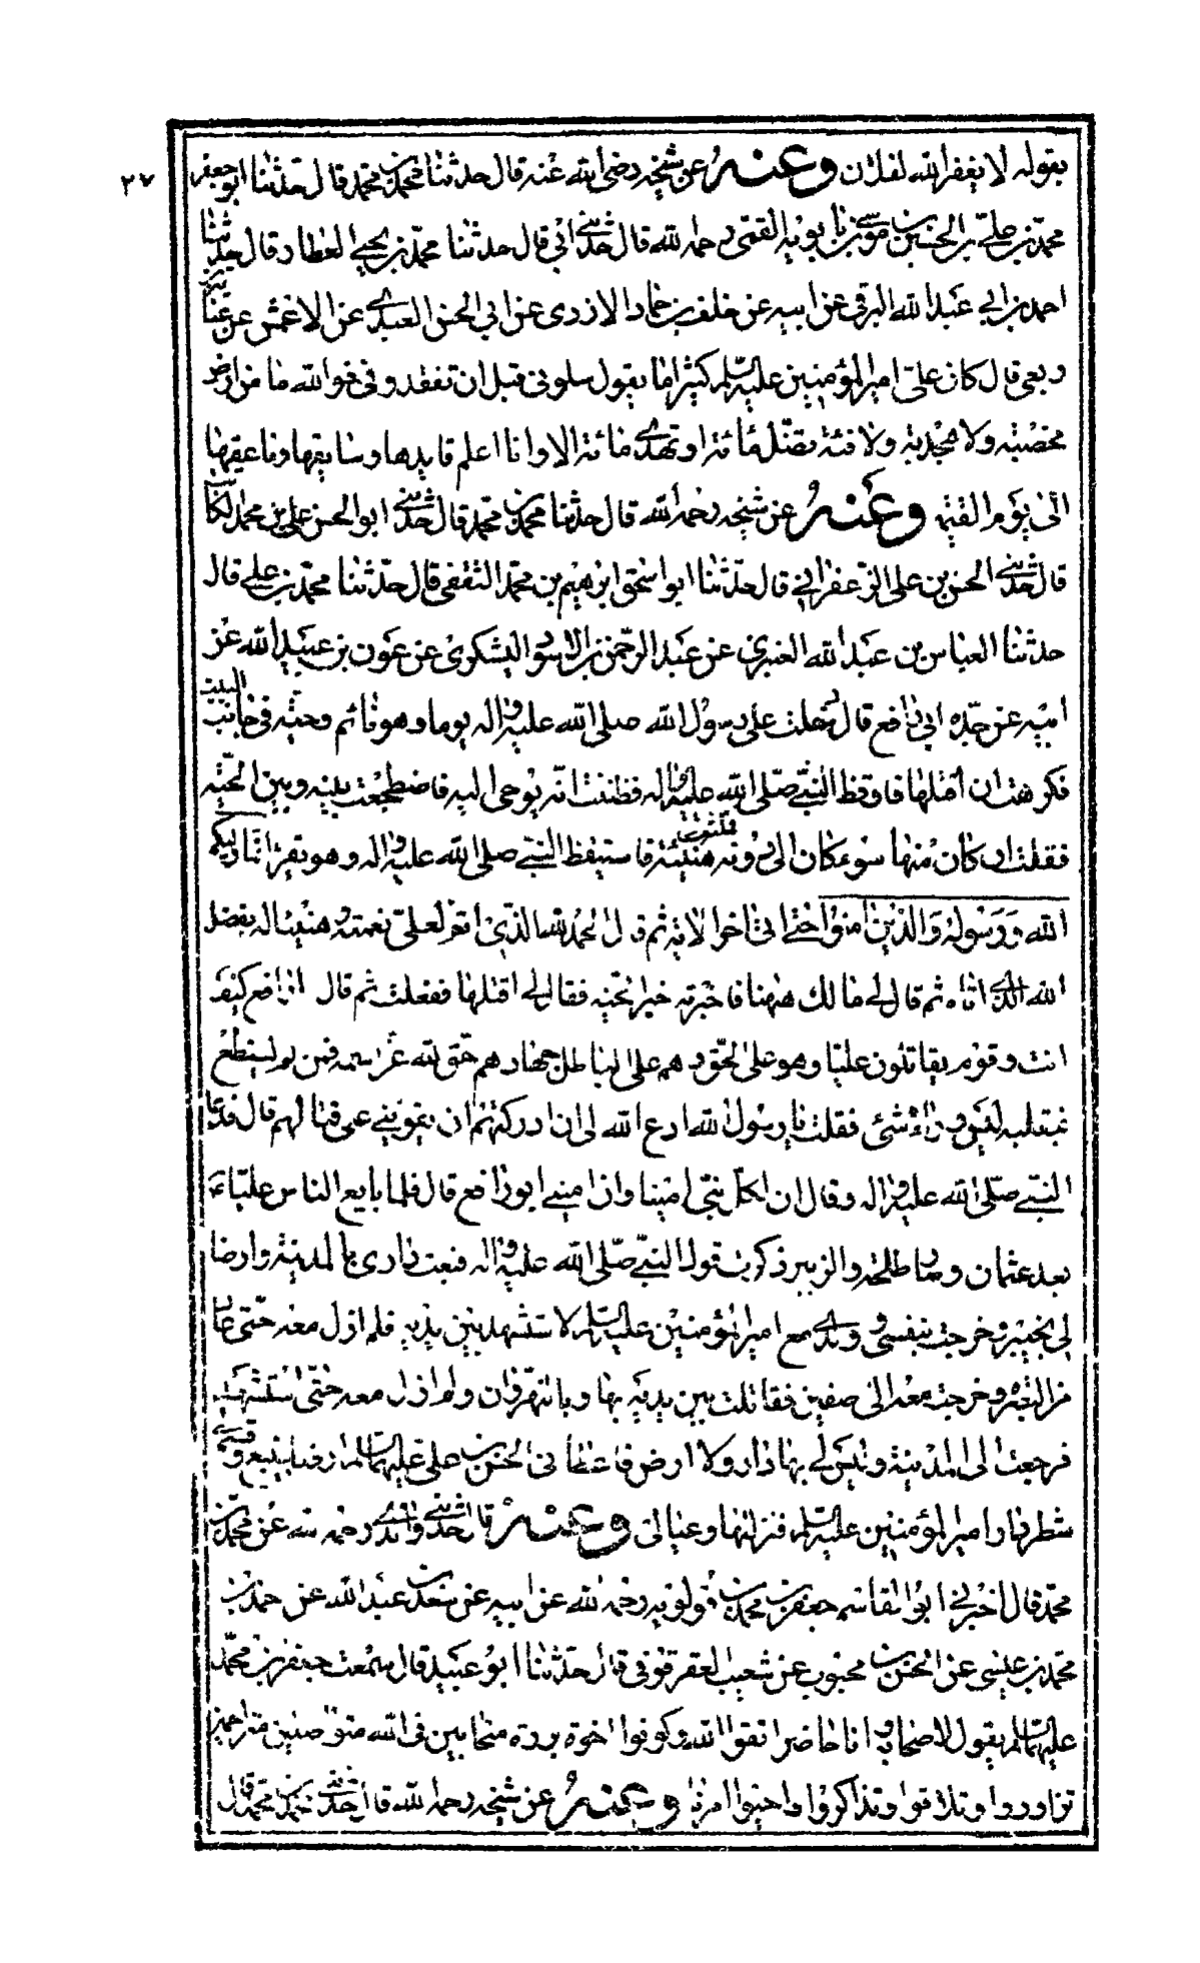 ٢٧
بقوله لا يغفر الله لفلان وعنه عن شيخه رضي الله عنه قال حدثنا محمد بن محمد قال حدثنا ابو جعفر
محمد بن علي بن الحسين بن موسى بن بابويه القمي رحمه الله قال حدثني ابي قال حدثنا محمد بن يحيى العطار قال حدثنا
احمد بن ابي عبد الله البرقي عن ابيه عن خلف بن حماد الازدي عن ابي الحسن العبدي عن الاعمش عن عباية بن
ربعي قال كان علي امير المؤمنين عليه السلم كثيرا ما يقول سلوني قبل ان تفقدوني فوالله ما من ارض
مخصبة ولا مجدبة ولا فئة تضل مائة او تهدي مائة الا وانا اعلم قايدها وسايقها وناعقها
الى يوم القيمة وعنه عن شيخه رحمه الله قال حدثنا محمد بن محمد قال حدثني ابو الحسن علي بن محمد الكاتب
قال حدثني الحسن بن علي الزعفراني قال حدثنا ابو اسحق ابرهيم بن محمد الثقفي قال حدثنا محمد بن علي قال
حدثنا العباس بن عبد الله العنبري عن عبد الرحمن بن الاسود اليشكري عن عون بن عبيد الله عن
ابيه عن جده ابي رافع قال دخلت على رسول الله صلى الله عليه واله يوما وهو نائم وحية في جانب البيت
فكرهت ان اقتلها فاوقظ النبي صلى الله عليه واله فظننت انه يوحى اليه فاضطجعت بينه وبين الحية
فقلت ان كان منها سوء كان الي دونه فمكثت هنيئة فاستيقظ النبي صلى الله عليه واله وهو يقرا انما وليكم
الله ورسوله والذين امنوا حتى اتى اخر الاية ثم قال الحمد لله الذي اتم لعلي نعمته وهنيئا له بفضل
الله الذي اتاه ثم قال لي ما لك ههنا فاخبرته خبر الحية فقال لي اقتلها ففعلت ثم قال ابا رافع كيف
انت وقوم يقاتلون عليا وهو على الحق وهم على الباطل جهادهم حق لله عز اسمه فمن لم يستطع
فبقلبه ليس وراءه شئ فقلت يا رسول الله ادع الله لي ان ادركتهم ان يقويني على قتالهم قال فدعا
النبي صلى الله عليه واله وقال ان لكل نبي امينا وان اميني ابو رافع قال فلما بايع الناس عليا
بعد عثمان وسار طلحة والزبير ذكرت قول النبي صلى الله عليه واله فبعت داري بالمدينة وارضا
لي بخيبر وخرجت بنفسي وولدي مع امير المؤمنين عليه السلم لاستشهد بين يديه فلم ازل معه حتى عاد
من البصرة وخرجت معه الى صفين فقاتلت بين يديه بها وبالنهروان ولم ازل معه حتى استشهد
فرجعت الى المدينة وليس لي بها دار ولا ارض فاعطاني الحسن بن علي عليهما السلام ارضا بينبع وقسم لي
شطر دار امير المؤمنين عليه السلم فنزلتها وعيالي وعنه قال حدثني والدي رحمه الله عن محمد بن
محمد قال اخبرني ابو القاسم جعفر بن محمد بن قولويه رحمه الله عن ابيه عن سعد بن عبد الله عن احمد بن
محمد بن عيسى عن الحسن بن محبوب عن شعيب العقرقوفي قال حدثنا ابو عبيد قال سمعت جعفر بن محمد
عليهما السلام يقول لاصحابه وانا حاضر اتقوا الله وكونوا اخوة بررة متحابين في الله متواصلين متراحمين
تزاوروا وتلاقوا وتذاكروا واحيوا امرنا وعنه عن شيخه رحمه الله قال حدثني محمد بن محمد قال